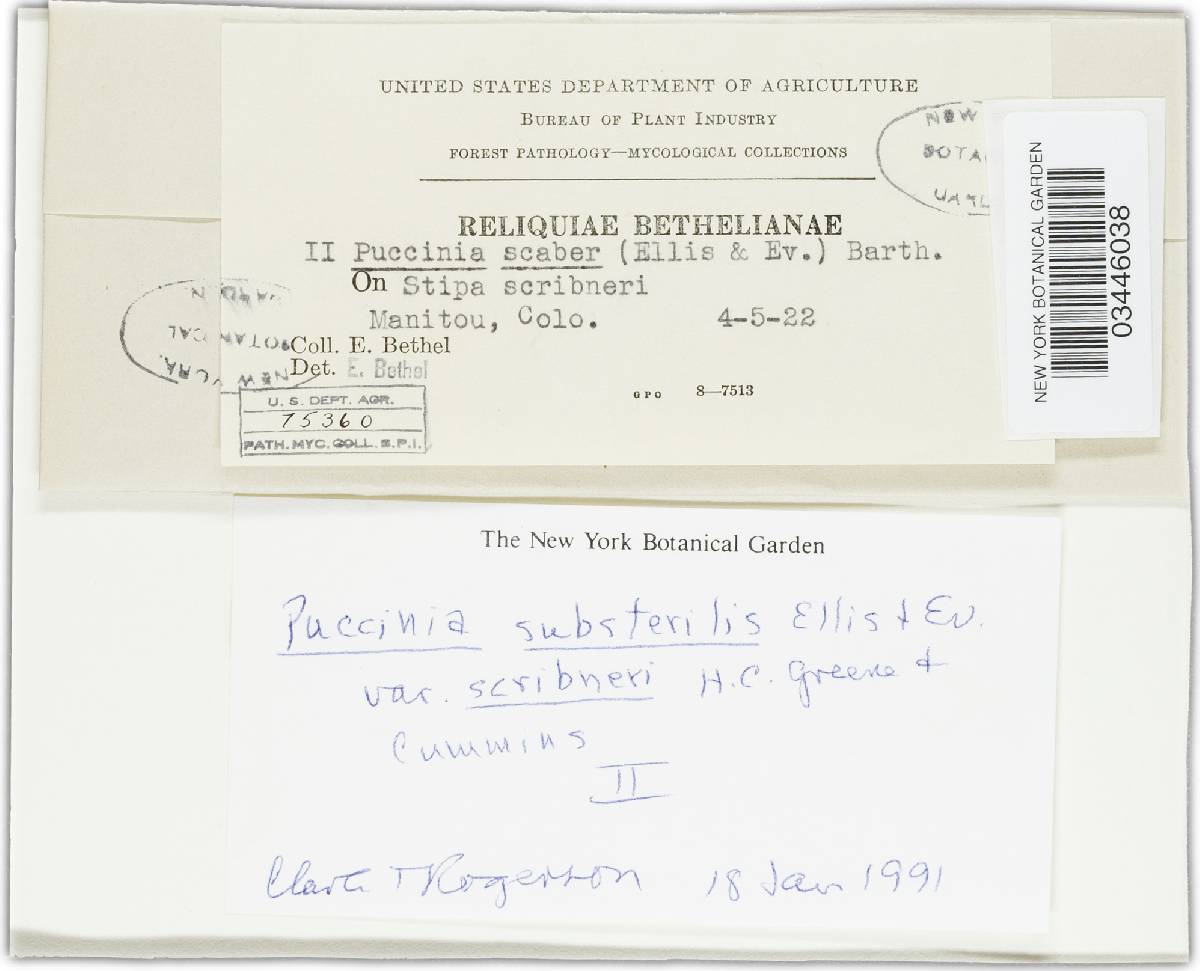 UNITED STATES DEPARTMENT OF AGRICULTURE
BUREAU OF PLANT INDUSTRY
FOREST PATHOLOGY—MYCOLOGICAL COLLECTIONS
RELIQUIAE BETHELIANAE
II Puccinia scaber (Ellis & Ev.) Barth.
On Stipa scribneri
Manitou, Colo. 4-5-22
Coll. E. Bethel
Det. E. Bethel
GPO 8—7513
U. S. DEPT. AGR.
75360
PATH. MYC. COLL. B.P.I.
NEW
BOTA
NEW
NEW YORK BOTANICAL GARDEN
03446038
The New York Botanical Garden
Puccinia substerilis Ellis & Ev.
var. scribneri H.C. Greene &
Cummins
II
Clark T Rogerson 18 Jan 1991